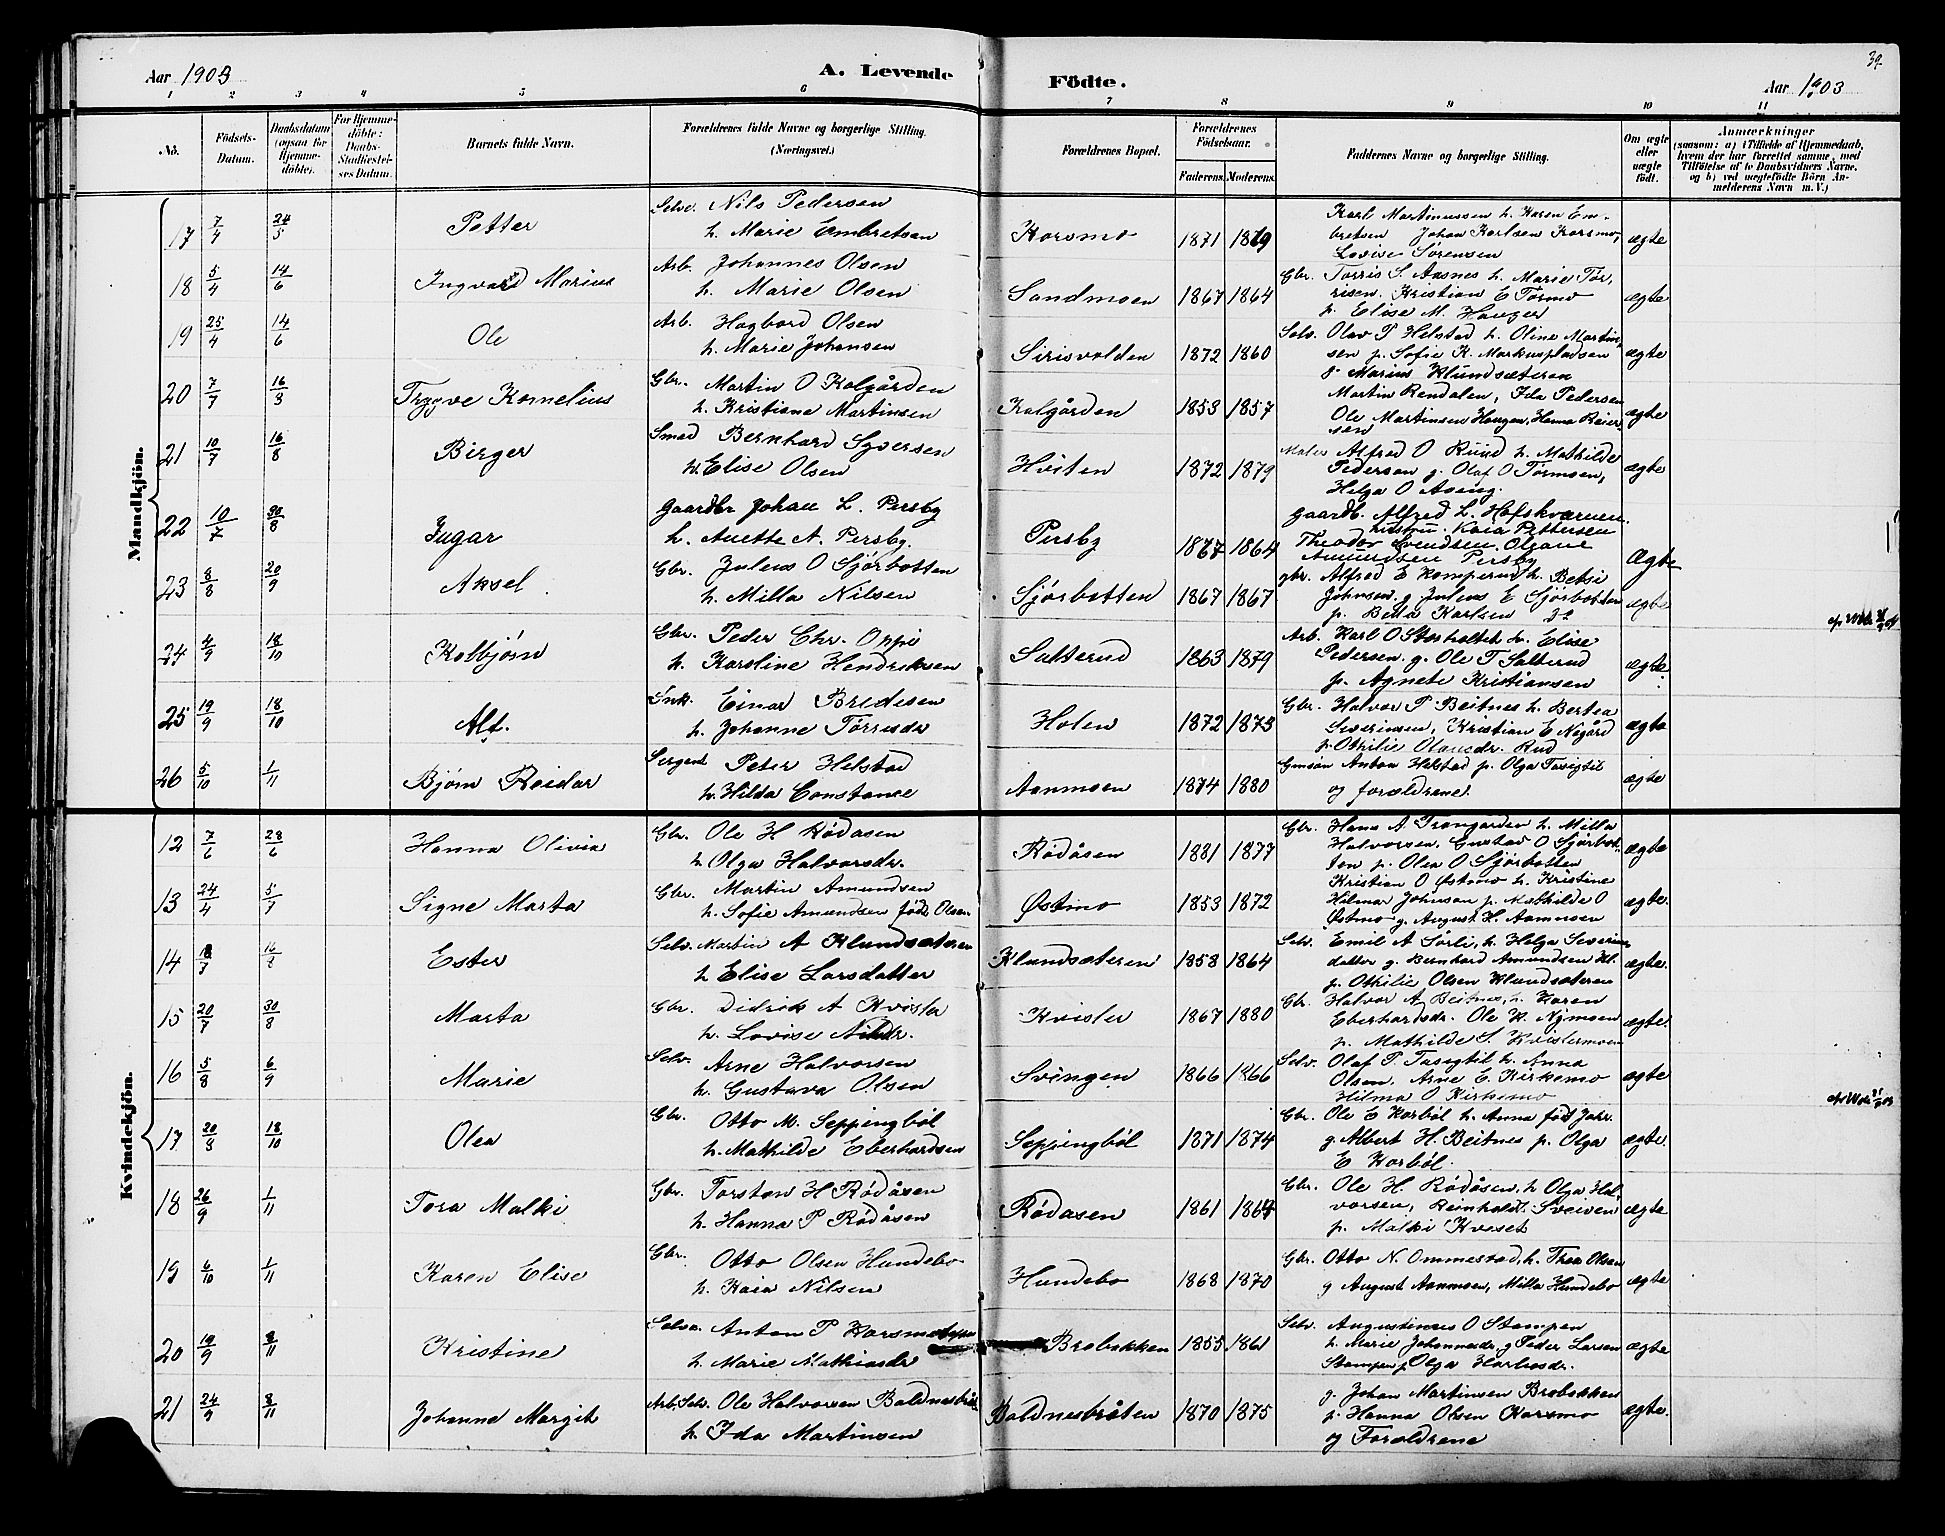 39
Aar 1903
A. Levende
Födte.
Aar 1903
1 2 3 4 5 6 7 8 9 10 11
No.
Födsels-
Datum.
Daabsdatum
(ogsaa for
Hjemme-
döbte).
For Hjemme-
döbte:
Daabs-
Stadfæstel-
ses Datum.
Barnets fulde Navn.
Forældrenes fulde Navne og borgerlige Stilling.
(Næringsvei.)
Forældrenes Bopæl.
Forældrenes
Födselsaar.
Faderens. Moderens.
Faddernes Navne og borgerlige Stilling.
Om ægte
eller
uægte
födt.
Anmærkninger
(saasom: a) i Tilfælde af Hjemmedaab,
hvem der har forrettet samme, med
Tilföielse af to Daabsvidners Navne,
og b) ved uægtefödte Börn An-
melderens Navn m. V.)
Mandkjön.
17 7/4 24/5 Petter
Selve. Nils Pedersen
h. Marie Embretsen
Korsmo 1871 1869
Karl Martinussen h. Karen Em-
bretsen Johan Karlsen Korsmo,
Lovise Sørensen
ægte
18 5/4 14/6 Ingvard Marius
Arb. Johannes Olsen
h. Marie Olsen
Sandmoen 1867 1864
Gbr. Torris S. Aasnes h. Marie Tor-
risen. Kristian E Tormo
p. Elise M. Hauger
ægte
19 25/4 14/6 Ole
Arb. Hagbard Olsen
h. Marie Johansen
Sirisvolden 1872 1860
Selv. Olav P Helstad h. Oline Martin-
sen p. Sofie K. Markuspladsen
g. Marius Klundsæteren
ægte
20 7/7 16/8 Trygve Kornelius
Gbr. Martin O Kolgården
h. Kristiane Martinsen
Kolgården 1853 1857
Martin Rendalen, Ida Pedersen
Ole Martinsen Haugen, Hanna Reier
sen
ægte
21 10/7 16/8 Birger
Smed Bernhard Syversen
h. Elise Olsen
Hviten 1872 1879
Maler Alfred O Ruud h. Mathilde
Pedersen g. Olaf O Tørmoen,
Helga O Aseng.
ægte
22 10/7 30/8 Ingar
Gaardbr Johan L. Persby
h. Anette A. Persby.
Persby 1867 1864
Gaardb. Alfred L. Hofskværnen.
hustru. Kaia Pettersen
Theodor Svendsen. Olgane
Amundsen Persby
Ægte
23 8/8 20/9 Aksel
Gbr. Julius O Sjørbotten
h. Milla Nilsen
Sjørbotten 1867 1867
gbr. Alfred E Komperud h. Betsi
Johnsen g. Julius E Sjørbotten
p. Betta Karlsen
ægte
24 4/9 18/10 Kolbjørn
Gbr. Peder Chr. Oppi
h. Karoline Hendriksen
Salterud 1863 1879
Arb. Karl O Storholtet h. Elise
Pedersen. g. Ole T Salterud
p. Agnete Kristiansen
ægte
25 19/9 18/10 Alf.
Snk. Einar Bredesen
h. Johanne Tørrisdr
Holen 1872 1873
Gbr. Halvor P Beitnes h. Bertea
Severinsen, Kristian E Nygård
p. Othilie Olausdr. Rud
ægte
26 5/10 1/11 Bjørn Reidar
Sergent Peter Helstad
h. Hilda Constance
Aanmoen 1874 1880
Gmsøn Anton Helstad p. Olga Tasigtil
og forældrene.
ægte
Kvindekjön.
12 7/6 28/6 Hanna Olivia
Gbr. Ole H Rødåsen
h Olga Halvorsdr.
Rødåsen 1881 1877
Gbr. Hans A Trongarden h. Milla
Halvorsen. Gustav O Sjørbot-
ten p. Olea O Sjørbotten
ægte
13 24/4 5/7 Signe Marta
Gbr. Martin Amundsen
h. Sofie Amundsen født Olsen
Østmo 1853 1872
Kristian O Østmo h. Kristine
Hilmar Johnsen p. Mathilde O
Østmo g. August H. Aanmoen
ægte.
14 Ester
Selv. Martin A Klundsæteren
h Elise Larsdatter
Klundsæteren 1858 1864
Selv. Emil A Sørli, h. Helga Severin-
datter g. Bernhard Amundsen Kl.
p. Othilie Olsen Klundsæteren
ægte.
15 20/7 30/8 Marta
Gbr. Didrik A Kvisler
h. Lovise Nilsdr.
Kvisler 1867 1880
Gbr. Halvor A Beitnes, h. Karen
Eberhardsdr. Ole K. Nymoen
p. Mathilde S. Kvislermoen
ægte.
16 5/8 6/9 Marie
Selv. Arne Halvorsen
h. Gustava Olsen
Svingen 1866 1866
Selv. Olaf P. Tasigtil h. Anna
Olsen, Arne E. Kirkemo
Hilma O Kirkemo
ægte
17 20/8 18/10 Olea
Gbr. Otto M. Seppingbøl
h. Mathilde Eberhardsen
Seppingbøl 1871 1874
Gbr. Ole E Korbøl h. Anna født Johr.
g Albert H. Beitnes p. Olga
E Korbøl.
ægte.
18 26/9 1/11 Tora Malki
Gbr. Torsten H Rødåsen
h. Hanna P Rødåsen
Rødåsen 1861 1864
Gbr. Ole H. Rødåsen, h Olga Hal-
vorsen, Reinhold Sveiven
p. Malki Kveset
ægte
19 6/10 1/11 Karen Elise
Gbr. Otto Olsen Hundebo
h. Kaia Nilsen
Hundebo 1868 1870
Gbr. Otto N. Ommestad, h. Thea Olsen
g August Aanmoen, Milla Hundebo
ægte
20 19/9 8/11 Kristine
Selve. Anton P Korsmo
h. Marie Mathiasdr
Brobakken 1855 1861
Selv. Augustinus O Stampen
h. Marie Johannesdr, g Peder Larsen
Stampen p Olga Harloesdr.
ægte
21 24/9 8/11 Johanne Margit
Arb. Selv. Ole Halvorsen Boldnesbråt.
h. Ida Martinsen
Boldnesbråten 1870 1875
g. Johan Martinsen Brobakken
p. Hanna Olsen Korsmo
og Forældrene
ægte.